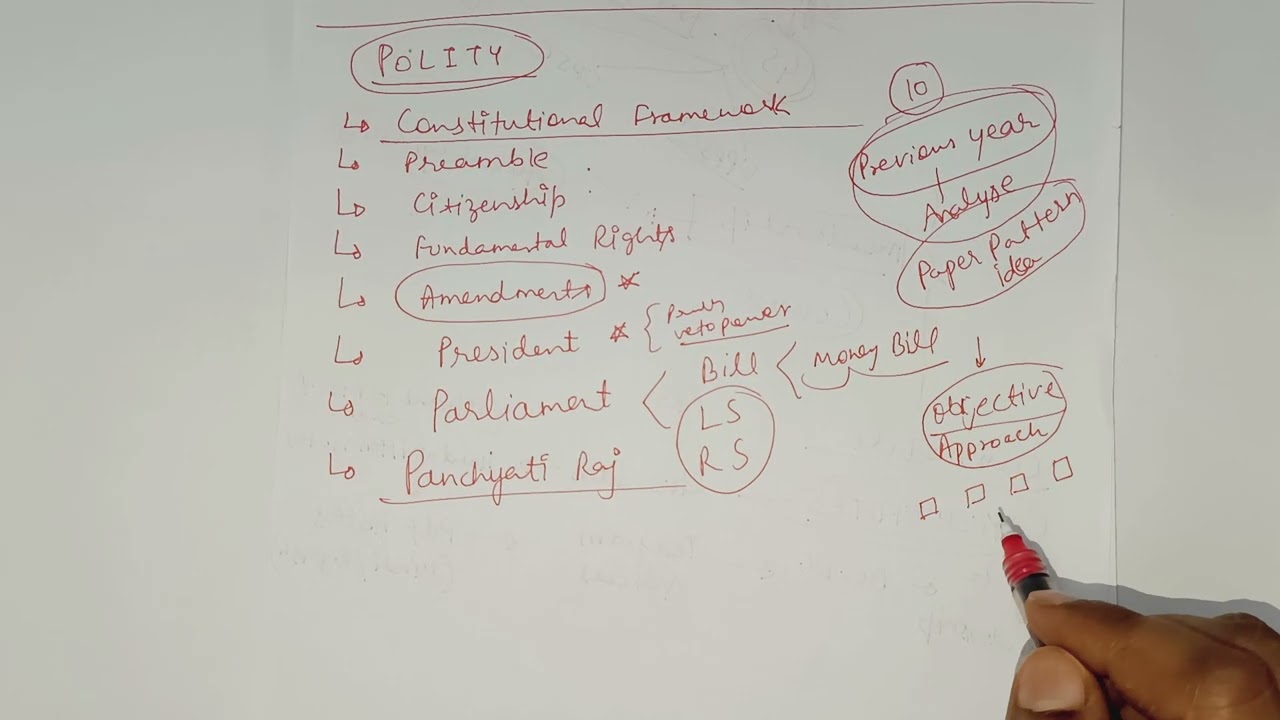 POLITY
Constitutional Framework
Preamble
Citizenship
Fundamental Rights
Amendments
President
veto power
Parliament
Bill
Money Bill
LS
RS
Panchyati Raj
10
Previous year
Analyse
Paper Pattern
idea
Objective
Approach